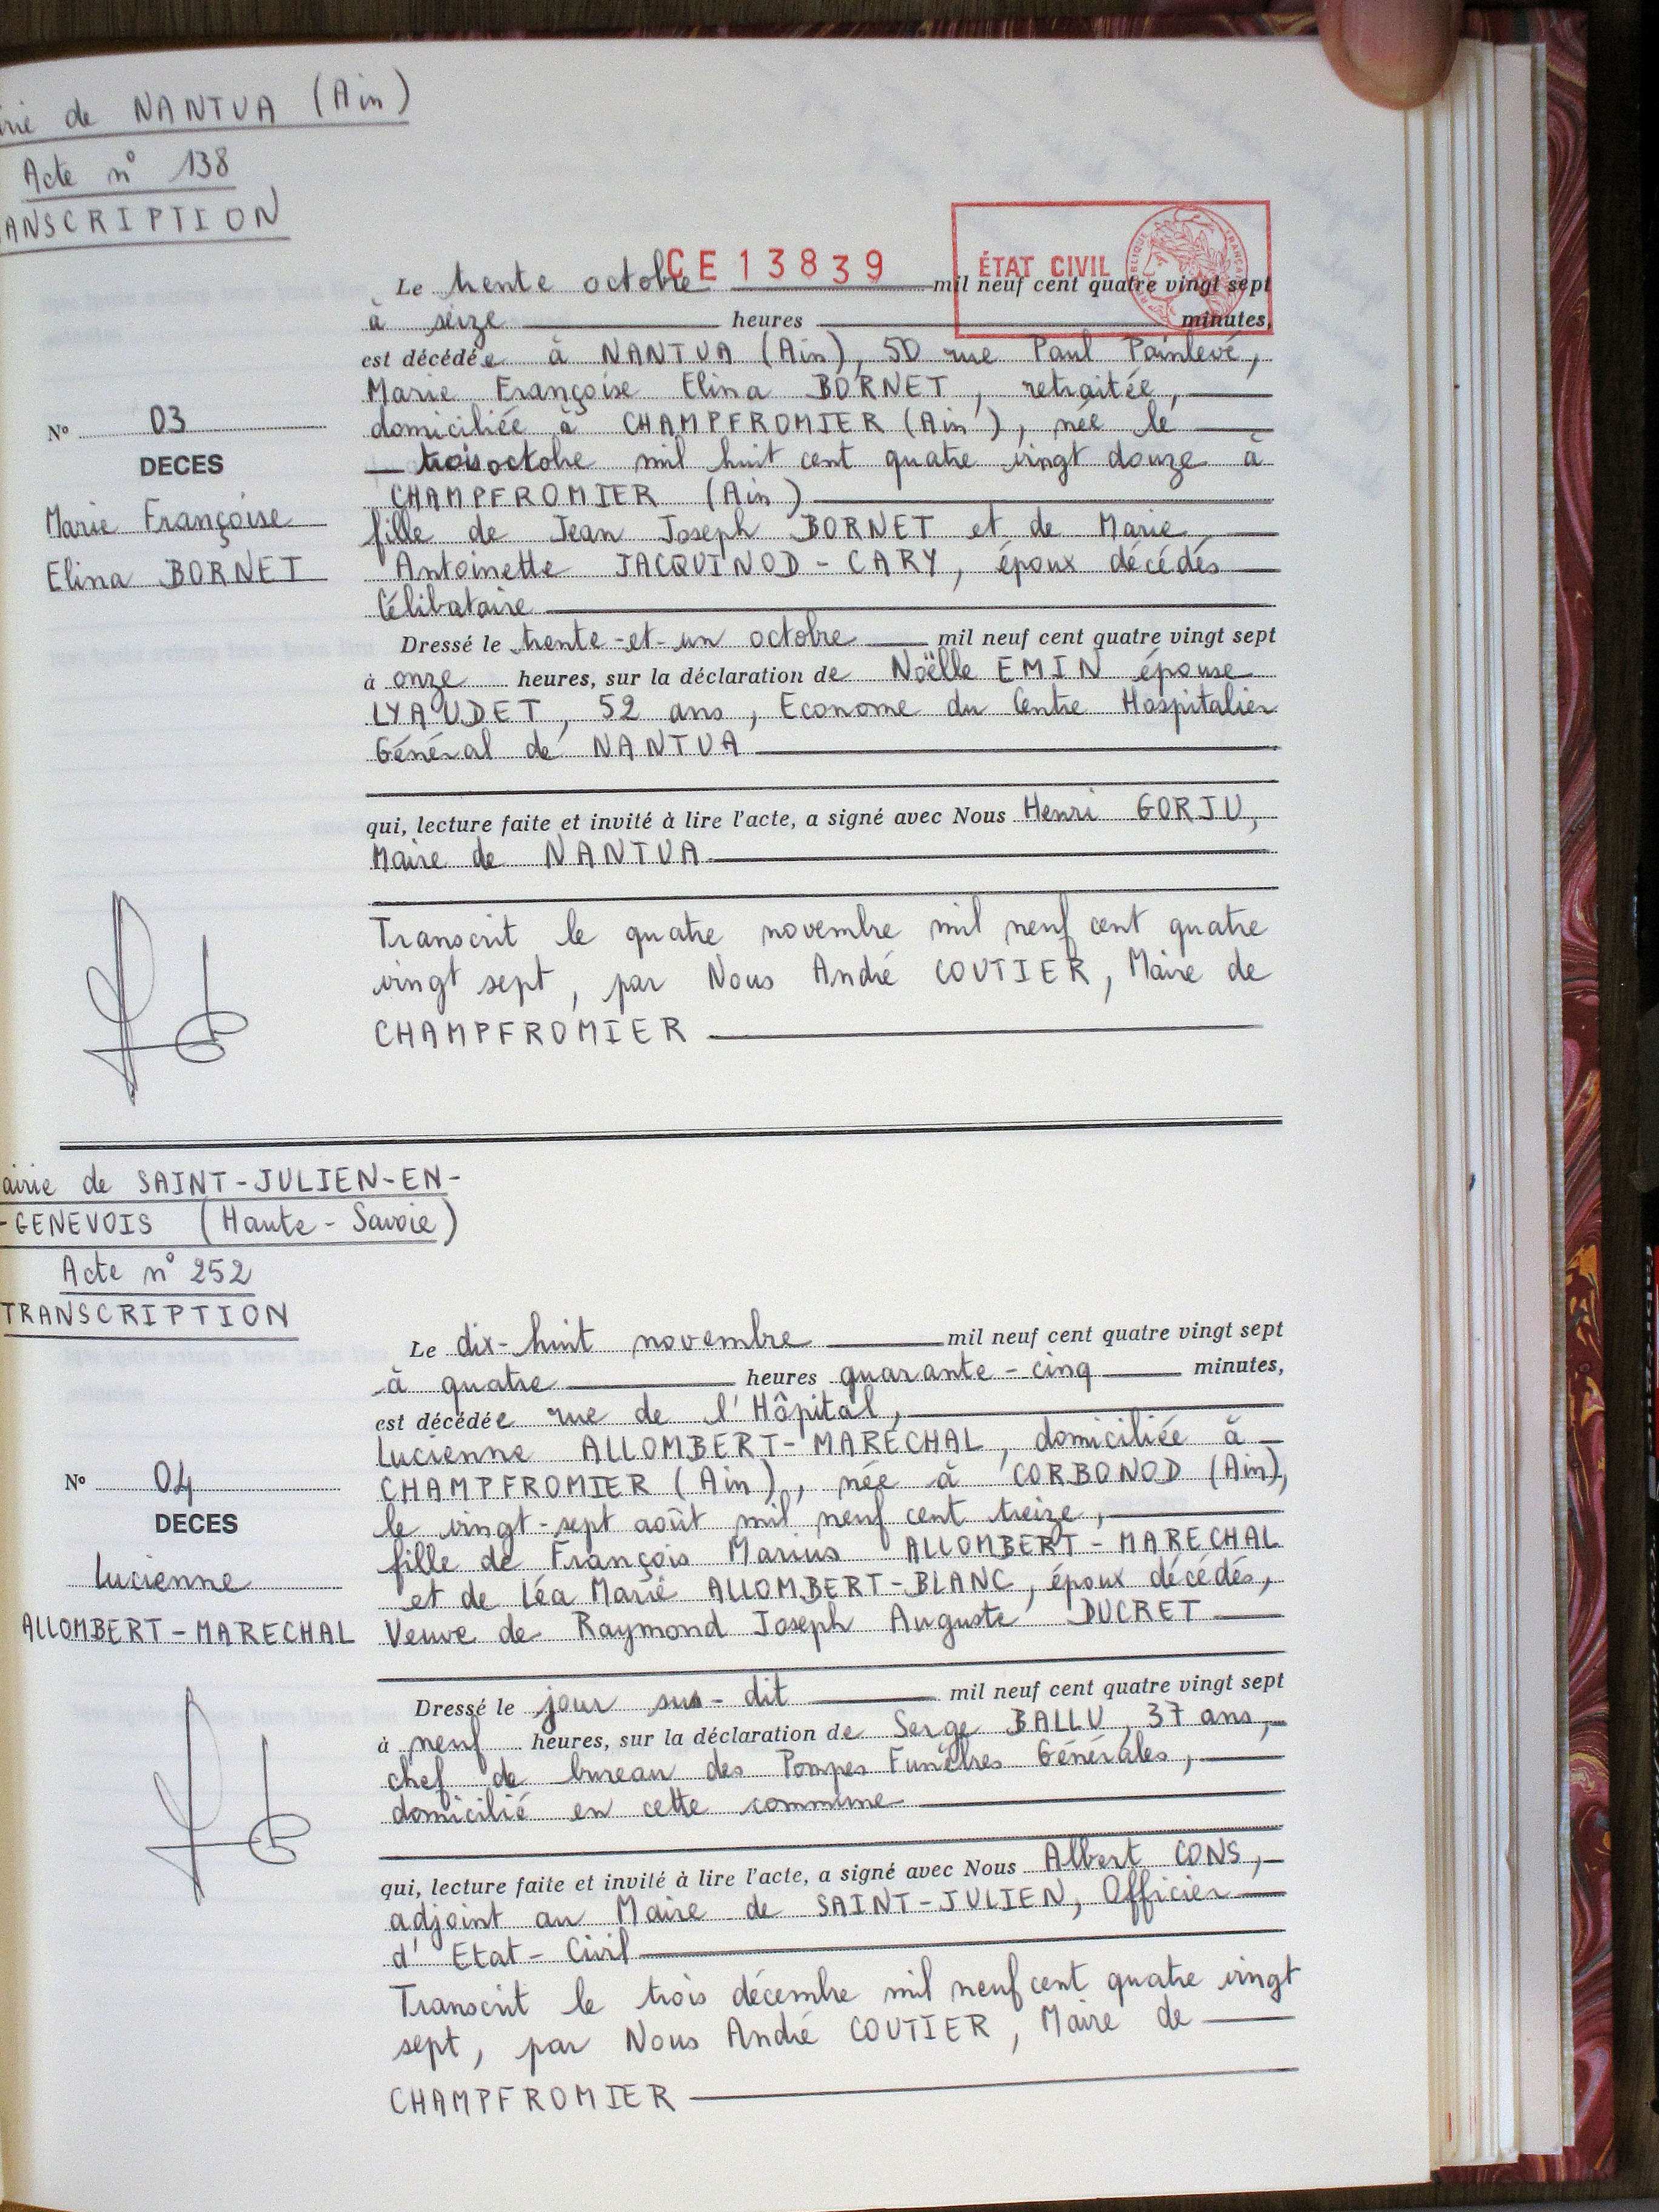 de NANTUA (Ain)
Acte n° 138
ANSCRIPTION
CE 13839
ÉTAT CIVIL
RÉPUBLIQUE FRANÇAISE
Le trente octobre mil neuf cent quatre vingt sept
à seize heures minutes,
est décédée à NANTUA (Ain), 50 rue Paul Painlevé,
Marie Françoise Elina BORNET, retraitée,
domiciliée à CHAMPFROMIER (Ain), née le
trois octobre mil huit cent quatre vingt douze à
CHAMPFROMIER (Ain)
fille de Jean Joseph BORNET et de Marie
Antoinette JACQUINOD-CARY, époux décédés
Célibataire
N° 03
DECES
Marie Françoise
Elina BORNET
Dressé le trente-et-un octobre mil neuf cent quatre vingt sept
à onze heures, sur la déclaration de Noëlle EMIN épouse
LYAUDET, 52 ans, Econome du Centre Hospitalier
Général de NANTUA
qui, lecture faite et invité à lire l'acte, a signé avec Nous Henri GORJU,
Maire de NANTUA
Transcrit le quatre novembre mil neuf cent quatre
vingt sept, par Nous André COUTIER, Maire de
CHAMPFROMIER
airie de SAINT-JULIEN-EN-
-GENEVOIS (Haute-Savoie)
Acte n° 252
TRANSCRIPTION
Le dix-huit novembre mil neuf cent quatre vingt sept
à quatre heures quarante-cinq minutes,
est décédée rue de l'Hôpital,
Lucienne ALLOMBERT-MARECHAL, domiciliée à
CHAMPFROMIER (Ain), née à CORBONOD (Ain),
le vingt-sept août mil neuf cent treize,
fille de François Marius ALLOMBERT-MARECHAL
et de Léa Marie ALLOMBERT-BLANC, époux décédés,
Veuve de Raymond Joseph Auguste DUCRET
N° 04
DECES
Lucienne
ALLOMBERT-MARECHAL
Dressé le jour sus-dit mil neuf cent quatre vingt sept
à neuf heures, sur la déclaration de Serge BALLU, 37 ans,
chef de bureau des Pompes Funèbres Générales,
domicilié en cette commune
qui, lecture faite et invité à lire l'acte, a signé avec Nous Albert CONS,
adjoint au Maire de SAINT-JULIEN, Officier
d'Etat-Civil
Transcrit le trois décembre mil neuf cent quatre vingt
sept, par Nous André COUTIER, Maire de
CHAMPFROMIER